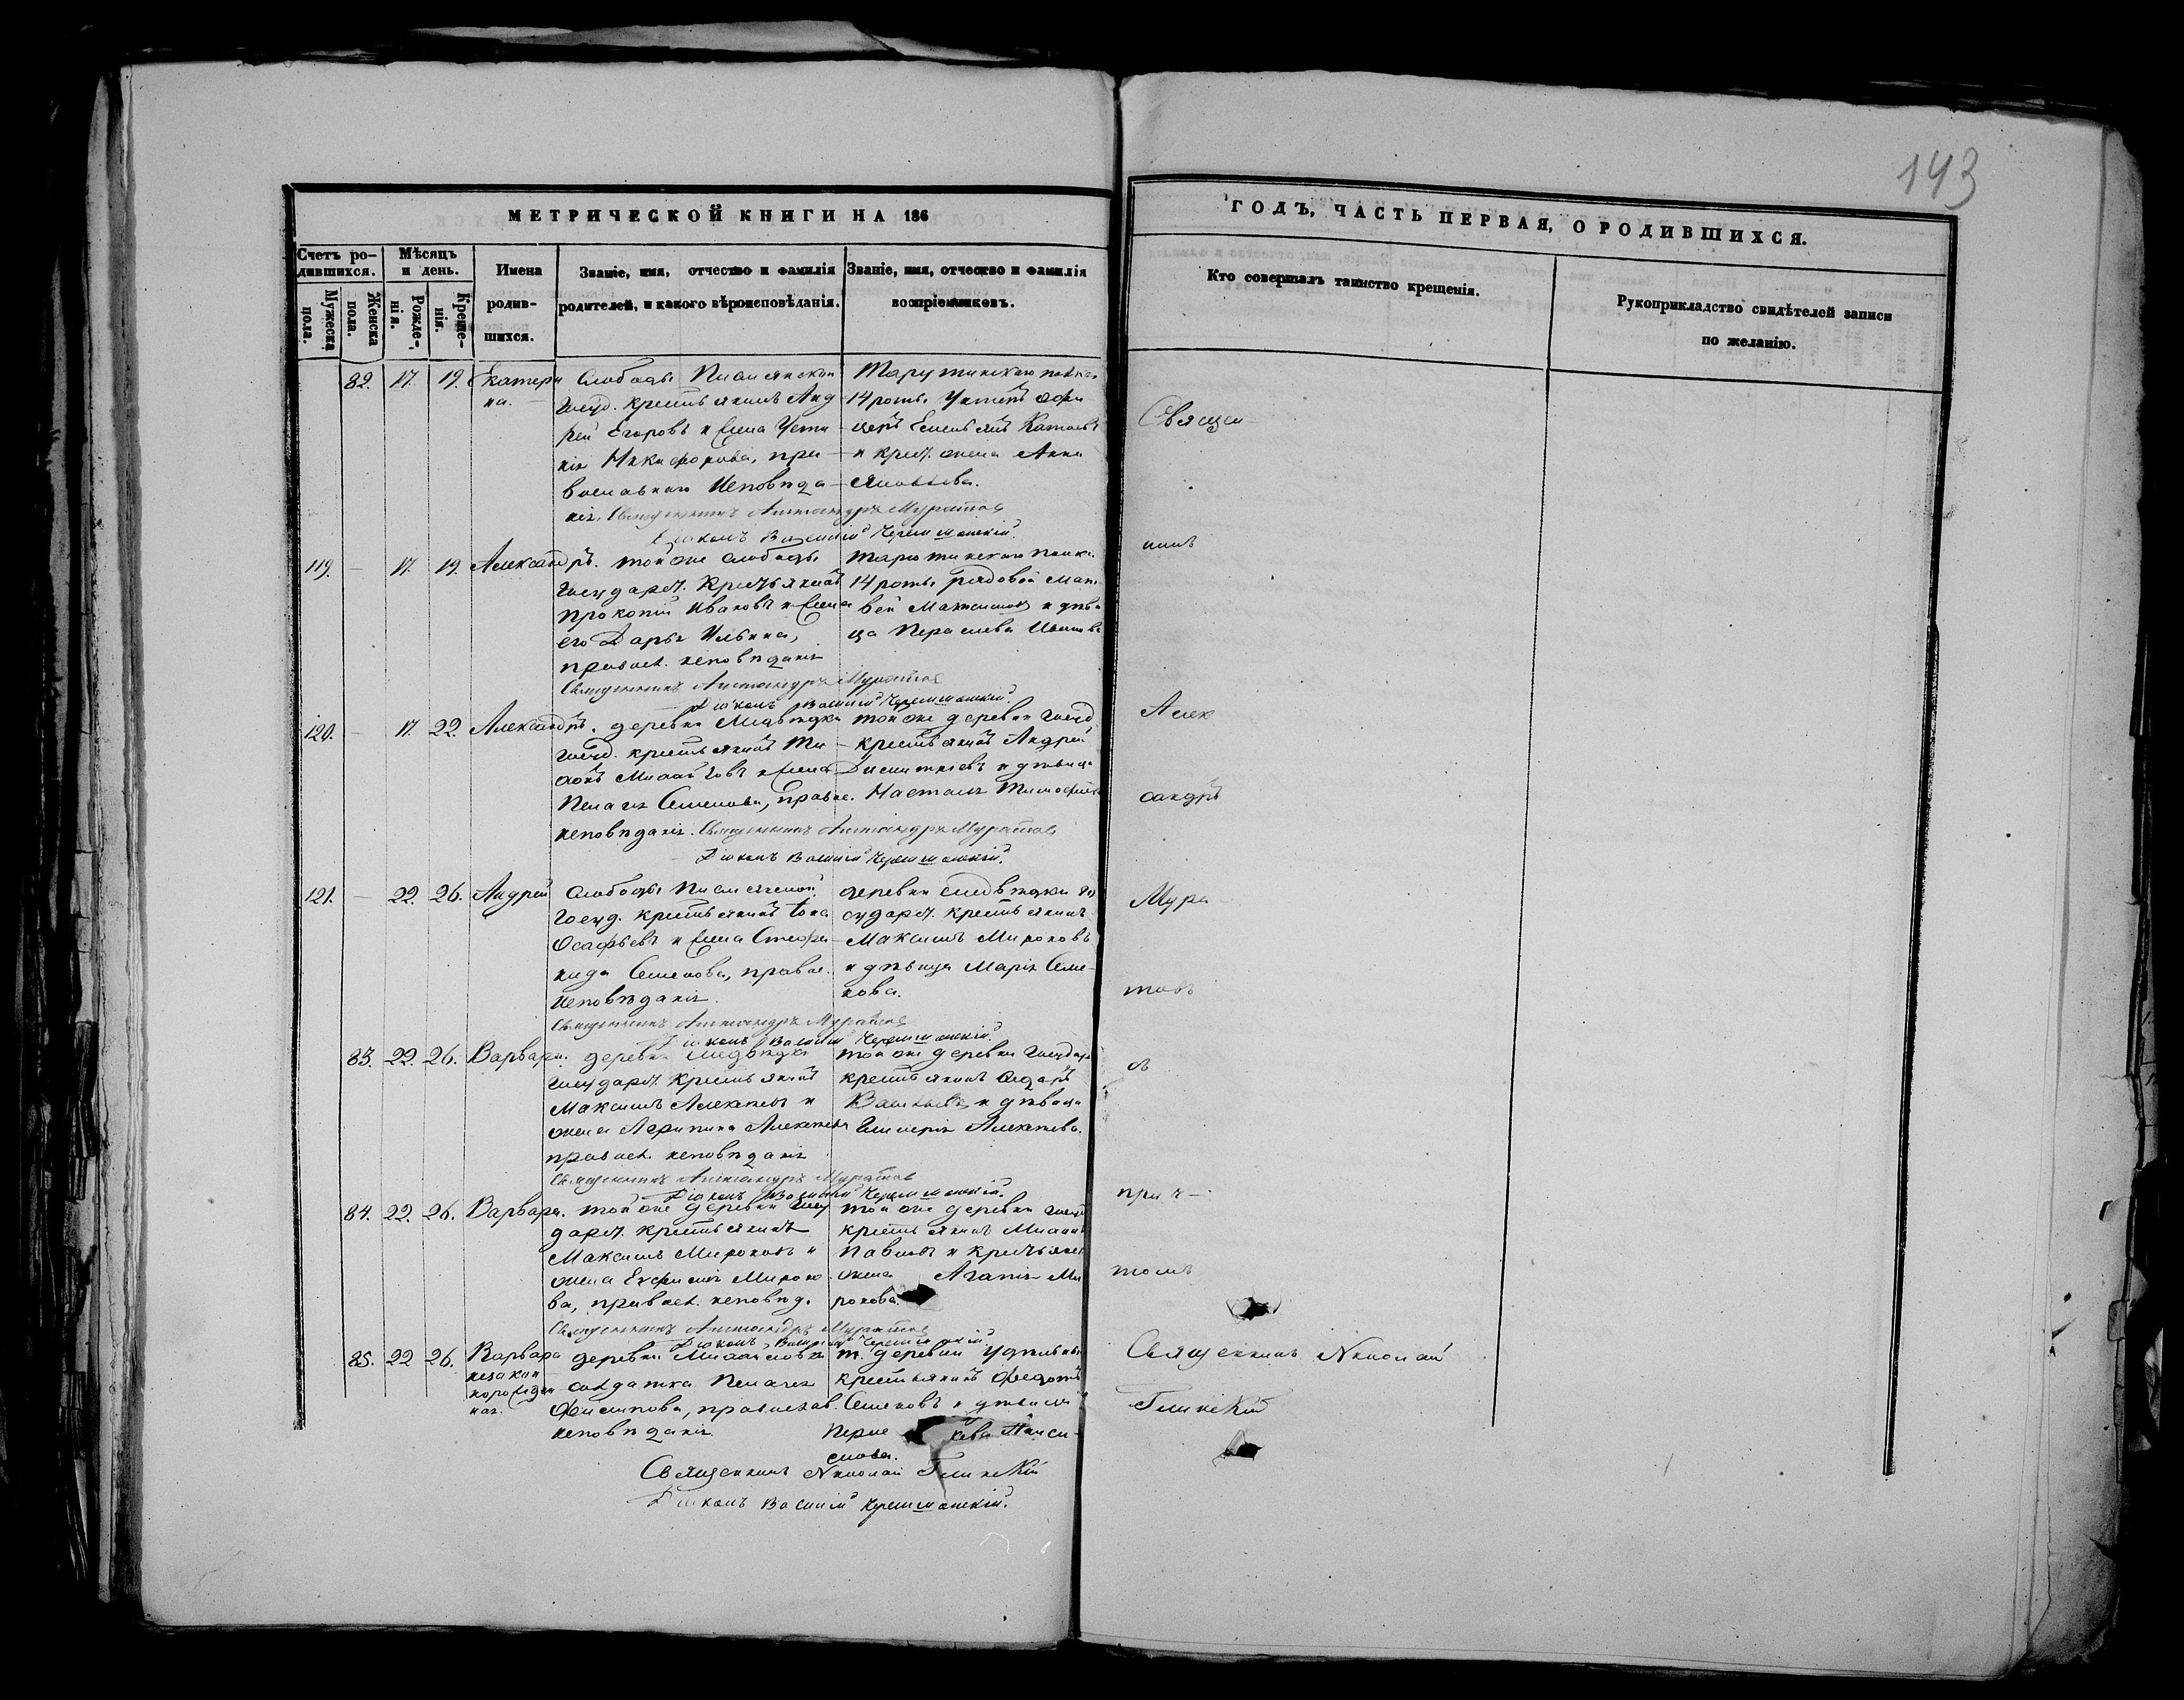 143
МЕТРИЧЕСКОЙ КНИГИ НА 186
ГОДЪ, ЧАСТЬ ПЕРВАЯ, О РОДИВШИХСЯ.
Счетъ ро-
дившихся.
Мужеска
пола.
Женска
пола.
Мѣсяцъ
и день.
Рожде-
нія.
Креще-
нія.
Имена
родив-
шихся.
Званіе, имя, отчество и фамилія
родителей, и какого вѣроисповѣданія.
Званіе, имя, отчество и фамилія
воспріемниковъ.
Кто совершалъ таинство крещенія.
Рукоприкладство свидѣтелей записи
по желанію.
82. 17. 19. Екатери
на.
Слободы Письмянской
Госуд. крестьянинъ Анд
рей Егоровъ и жена Усти
нія Никифорова, пра-
вославнаго исповѣда-
нія. Священникъ Александръ Муратовъ
Діаконъ Василій Черемшанскій.
Тарутинскаго полка
14 роты Унтеръ офи
церъ Емельянъ
и крест. жена Анна
119. – 17. 19. Александръ.
той же слободы
Государст. Крестьянинъ
Прокопій Ивановъ и жена
его Дарья Ильина,
правосл. исповѣданія
Священникъ Александръ Муратовъ
Діаконъ Василій Черемшанскій.
Тарутинскаго полка
14 роты рядовой Мат
вей Максимовъ и дѣви
ца Параскева
120. – 17. 22. Александръ.
деревни Медвѣдки
Госуд. крестьянинъ Ти-
хонъ Михайловъ и жена
Пелагія Семенова, правос.
исповѣданія. Священникъ Александръ Муратовъ
Діаконъ Василій Черемшанскій.
той же деревни Госуд
крестьянинъ Андрей
и дѣвица
Настасья Тимофеева
121. – 22. 26. Андрей
Слободы Письмянской
Госуд. крестьянинъ Іона
Осафьевъ и жена Стефа-
нида Семенова, правос.
исповѣданія.
Священникъ Александръ Муратовъ
Діаконъ Василій Черемшанскій.
деревни Медвѣдки го
сударст. крестьянинъ
Максимъ Мироновъ
и дѣвица Марія Семе-
нова.
83. 22. 26. Варвара.
деревни Медвѣдки
Государст. крестьянинъ
Максимъ Алексѣевъ и
жена Агрипина Алексѣева
правосл. исповѣданія
Священникъ Александръ Муратовъ
Діаконъ Василій Черемшанскій.
той же деревни
крестьянинъ
Васильевъ и дѣвица
Алексѣева.
84. 22. 26. Варвара.
той же деревни Госу
дарст. крестьянинъ
Максимъ Мироновъ и
жена Евфимія Мироно
ва, правосл. исповѣд.
Священникъ Александръ Муратовъ
Діаконъ Василій Черемшанскій
той же деревни Госуд
крестьянинъ Михаилъ
Павловъ и крестьянск
жена Агапія Ми
ронова.
85. 22 26. Варвара
незакон
норожден
ная.
деревни Михайловки
солдатка Пелагія
Филипова, православ.
исповѣданія
т. деревни Удѣльный
крестьянинъ Федотъ
Семеновъ и дѣвица
симова.
Священникъ Николай Глинскій
Діаконъ Василій Черемшанскій.
Священ-
никъ
Алек
сандръ
Мура
товъ
съ
прич-
томъ
Священникъ Николай
Глинскій